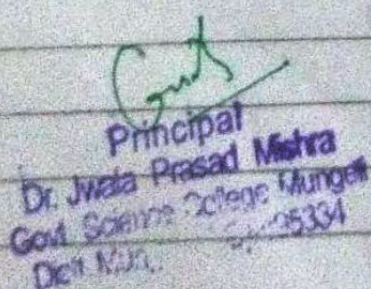 Principal
Dr. Jwala Prasad Mishra
Govt Science College Mungeli
Dist